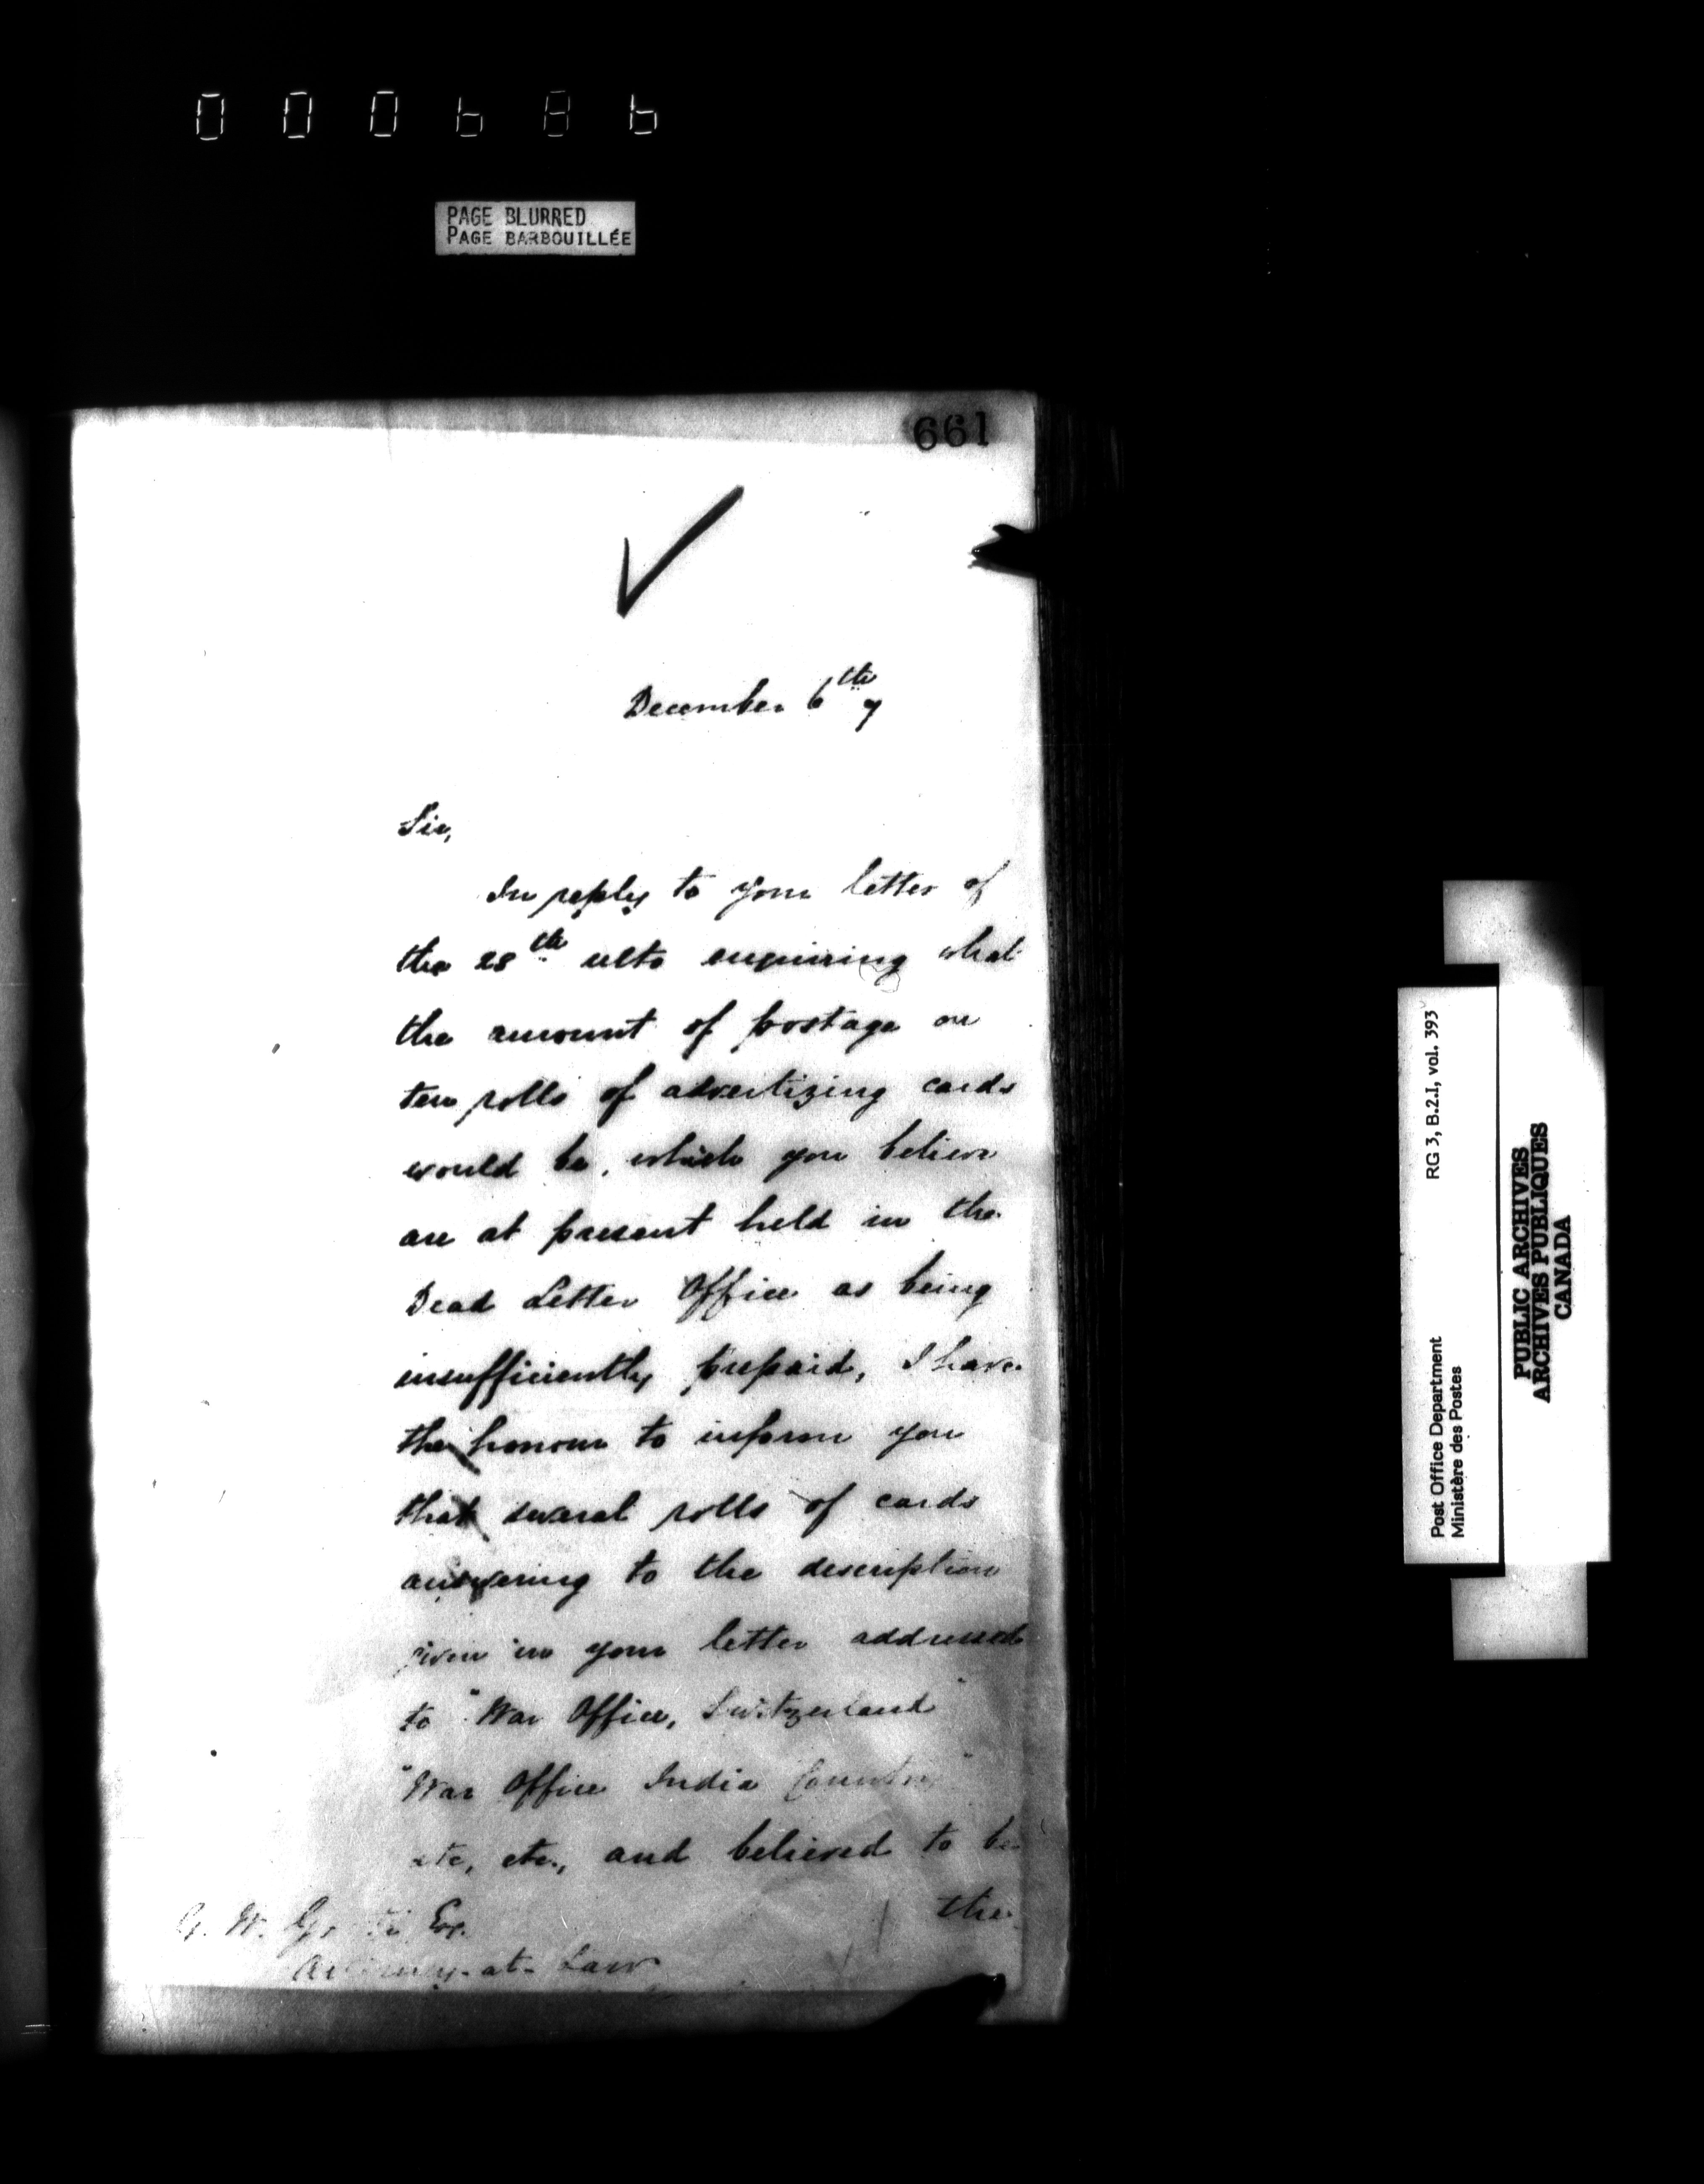 000686
PAGE BLURRED
PAGE BARBOUILLÉE
661
December 6th 7
Sir,
In reply to your letter of
the 28th ulto enquiring what
the amount of postage on
ten rolls of advertizing cards
would be, which you believe
are at present held in the
Dead Letter Office as being
insufficiently prepaid, I have
the honour to inform you
that several rolls of cards
answering to the description
given in your letter addressed
to "War Office, Switzerland"
"War Office India Country"
etc, etc., and believed to be
the
G. W. Esq.
Attorney-at-Law
RG 3, B.2.I, vol. 393
Post Office Department
Ministère des Postes
PUBLIC ARCHIVES
ARCHIVES PUBLIQUES
CANADA